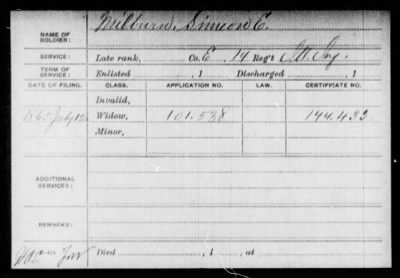 NAME OF SOLDIER: Milburn, Simeon C.
SERVICE: Late rank, Co. E, 14 Reg't Inf.
TERM OF SERVICE: Enlisted , 1 Discharged , 1
DATE OF FILING. CLASS. APPLICATION NO. LAW. CERTIFICATE NO.
Invalid,
July 12 Widow, 101.538 144.433
Minor,
ADDITIONAL SERVICES:
REMARKS:
Died , 1 , at